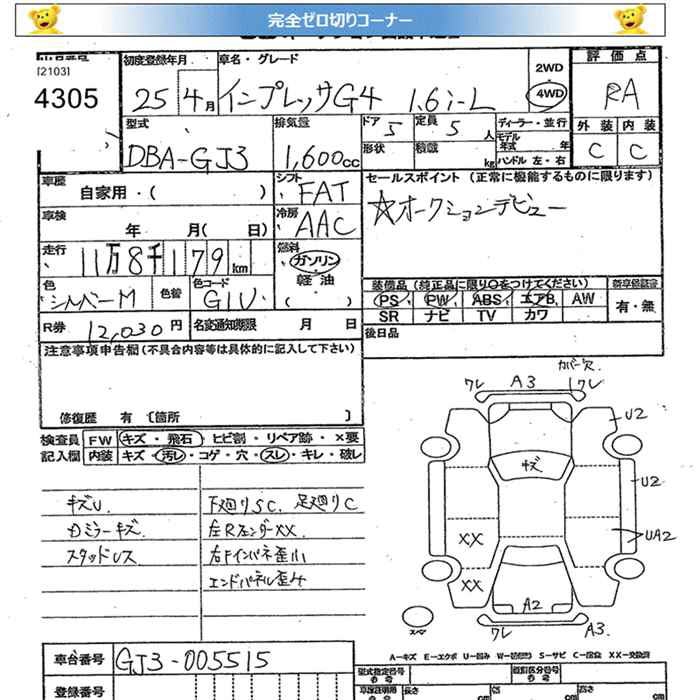 完全ゼロ切りコーナー
[2103]
4305
初度登録年月
25 4月
車名・グレード
インプレッサG4 1.6i-L
2WD
4WD
評価点
RA
型式
DBA-GJ3
排気量
1,600cc
ドア 5
定員 5人
形状
積載 kg
ディーラー・並行
モデル年式 年
ハンドル 左・右
外装 内装
C C
車歴
自家用・( )
シフト
FAT
セールスポイント (正常に機能するものに限ります)
☆オークションデビュー
車検
年 月( 日)
冷房
AAC
走行
11万8千179km
燃料
ガソリン
軽油
( )
色
シルバーM
色替
色コード
G1U
装備品(純正品に限り○をつけてください)
PS PW ABS エアB AW
SR ナビ TV カワ
新車保証書
有・無
R券 12,030円
名変通知期限 月 日
後日品
注意事項申告欄(不具合内容等は具体的に記入して下さい)
修復歴 有 〔箇所 〕
検査員記入欄
FW キズ・飛石・ヒビ割・リペア跡・×要
内装 キズ・汚レ・コゲ・穴・スレ・キレ・破レ
キズU
下廻りSC. 足廻りC
ドミラーキズ
左Rフェンダーxx.
スタッドレス
右Fインパネ歪小
エンドパネル歪み
カバー欠
ワレ A3 ワレ
U2
キズ
U2
XX
UA2
XX
A2
ワレ A3.
スペア
A-キズ E-エクボ U-凹み W-補修跡 S-サビ C-腐食 XX-交換済
車台番号
GJ3-005515
型式指定番号
類別区分番号
登録番号
長さ cm
幅 cm
高さ cm